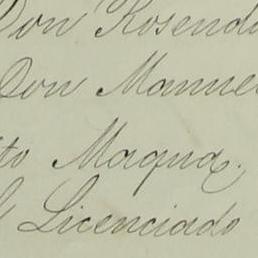 Don Rosend
Don Manue
to Maqua.
Licenciado